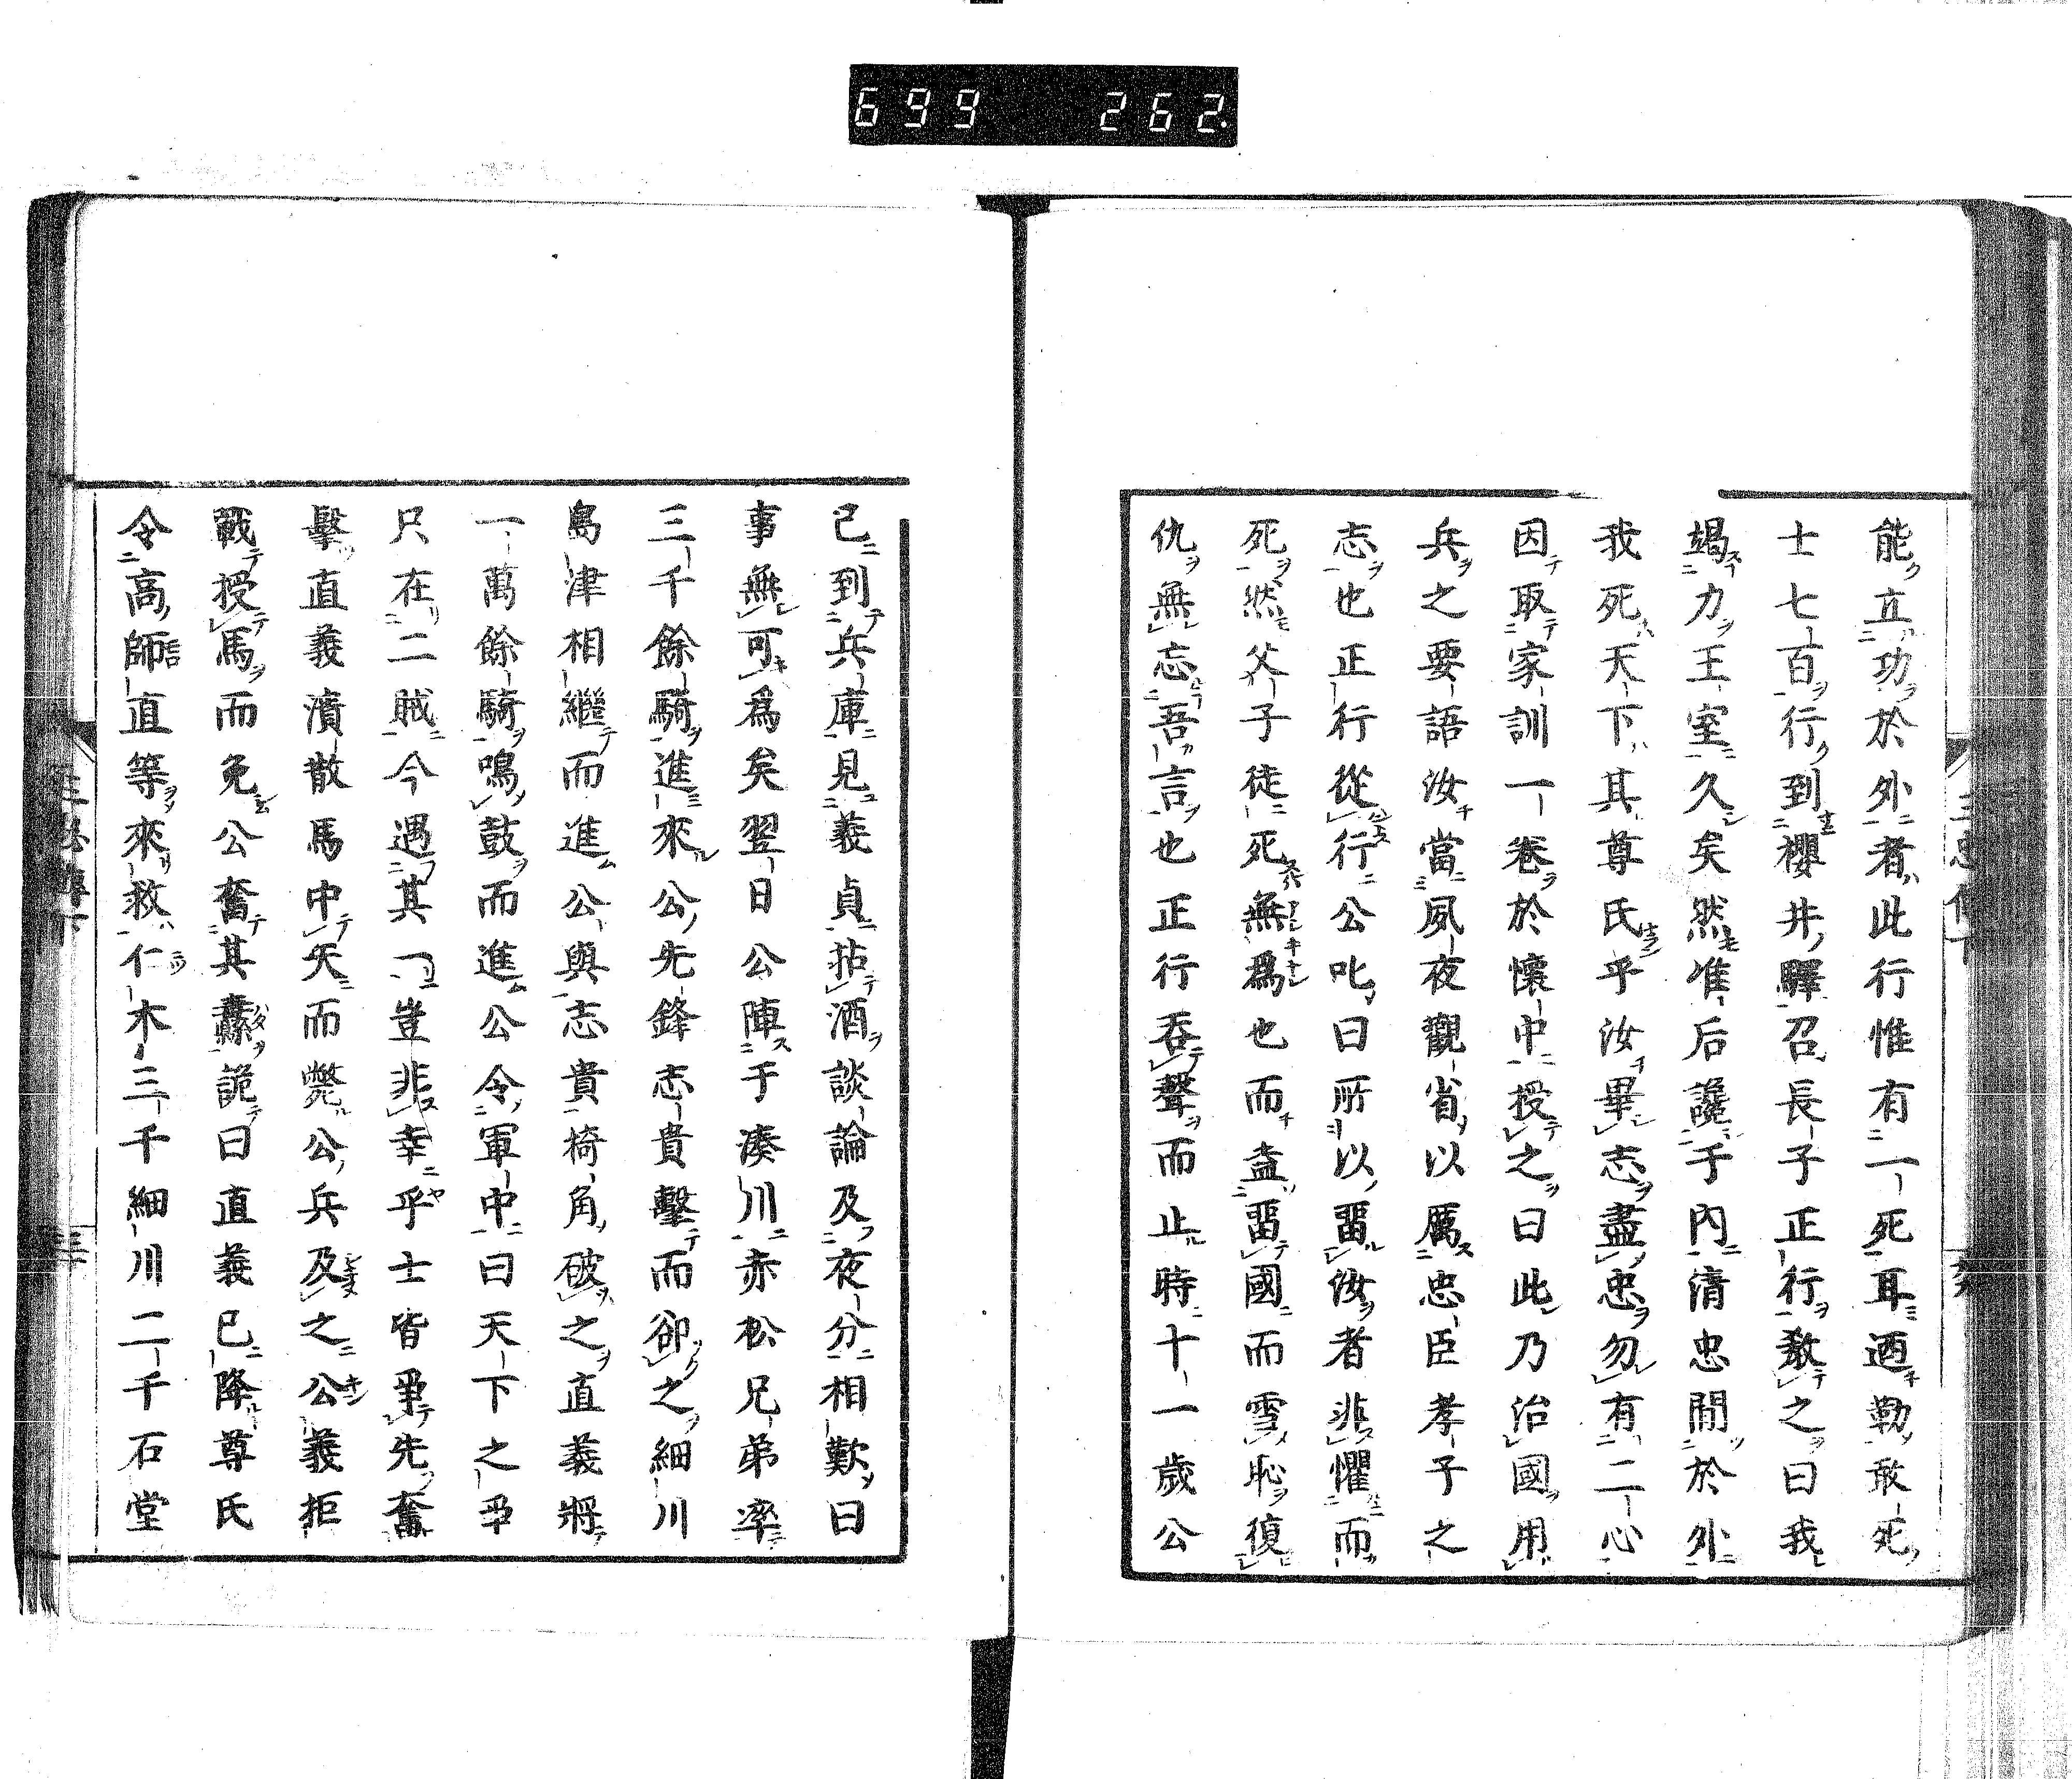 699 262
能立功於外者此行惟有一死耳迺勒敢死
士七百行到櫻井驛召長子正行教之曰我
竭力王室久矣然准后讒于內清忠閒於外
我死天下其尊氏乎汝畢志盡忠勿有二心
因取家訓一卷於懷中授之曰此乃治國用
兵之要語汝當夙夜觀省以厲忠臣孝子之
志也正行從行公叱曰所以畱汝者非懼而
死然父子徒死無爲也而盍畱國而雪恥復
仇無忘吾言也正行吞聲而止時十一歲公
已到兵庫見義貞拈酒談論及夜分相歎曰
事無可爲矣翌日公陣于湊川赤松兄弟率
三千餘騎進來公先鋒志貴擊而卻之細川
島津相繼而進公與志貴椅角破之直義將
一萬餘騎鳴鼓而進公令軍中曰天下之爭
只在二賊今遇其一豈非幸乎士皆爭先奮
擊直義潰散馬中矢而斃公兵及之公義拒
戰授馬而免公奮其纛詭曰直義已降尊氏
令高師直等來救仁木三千細川二千石堂